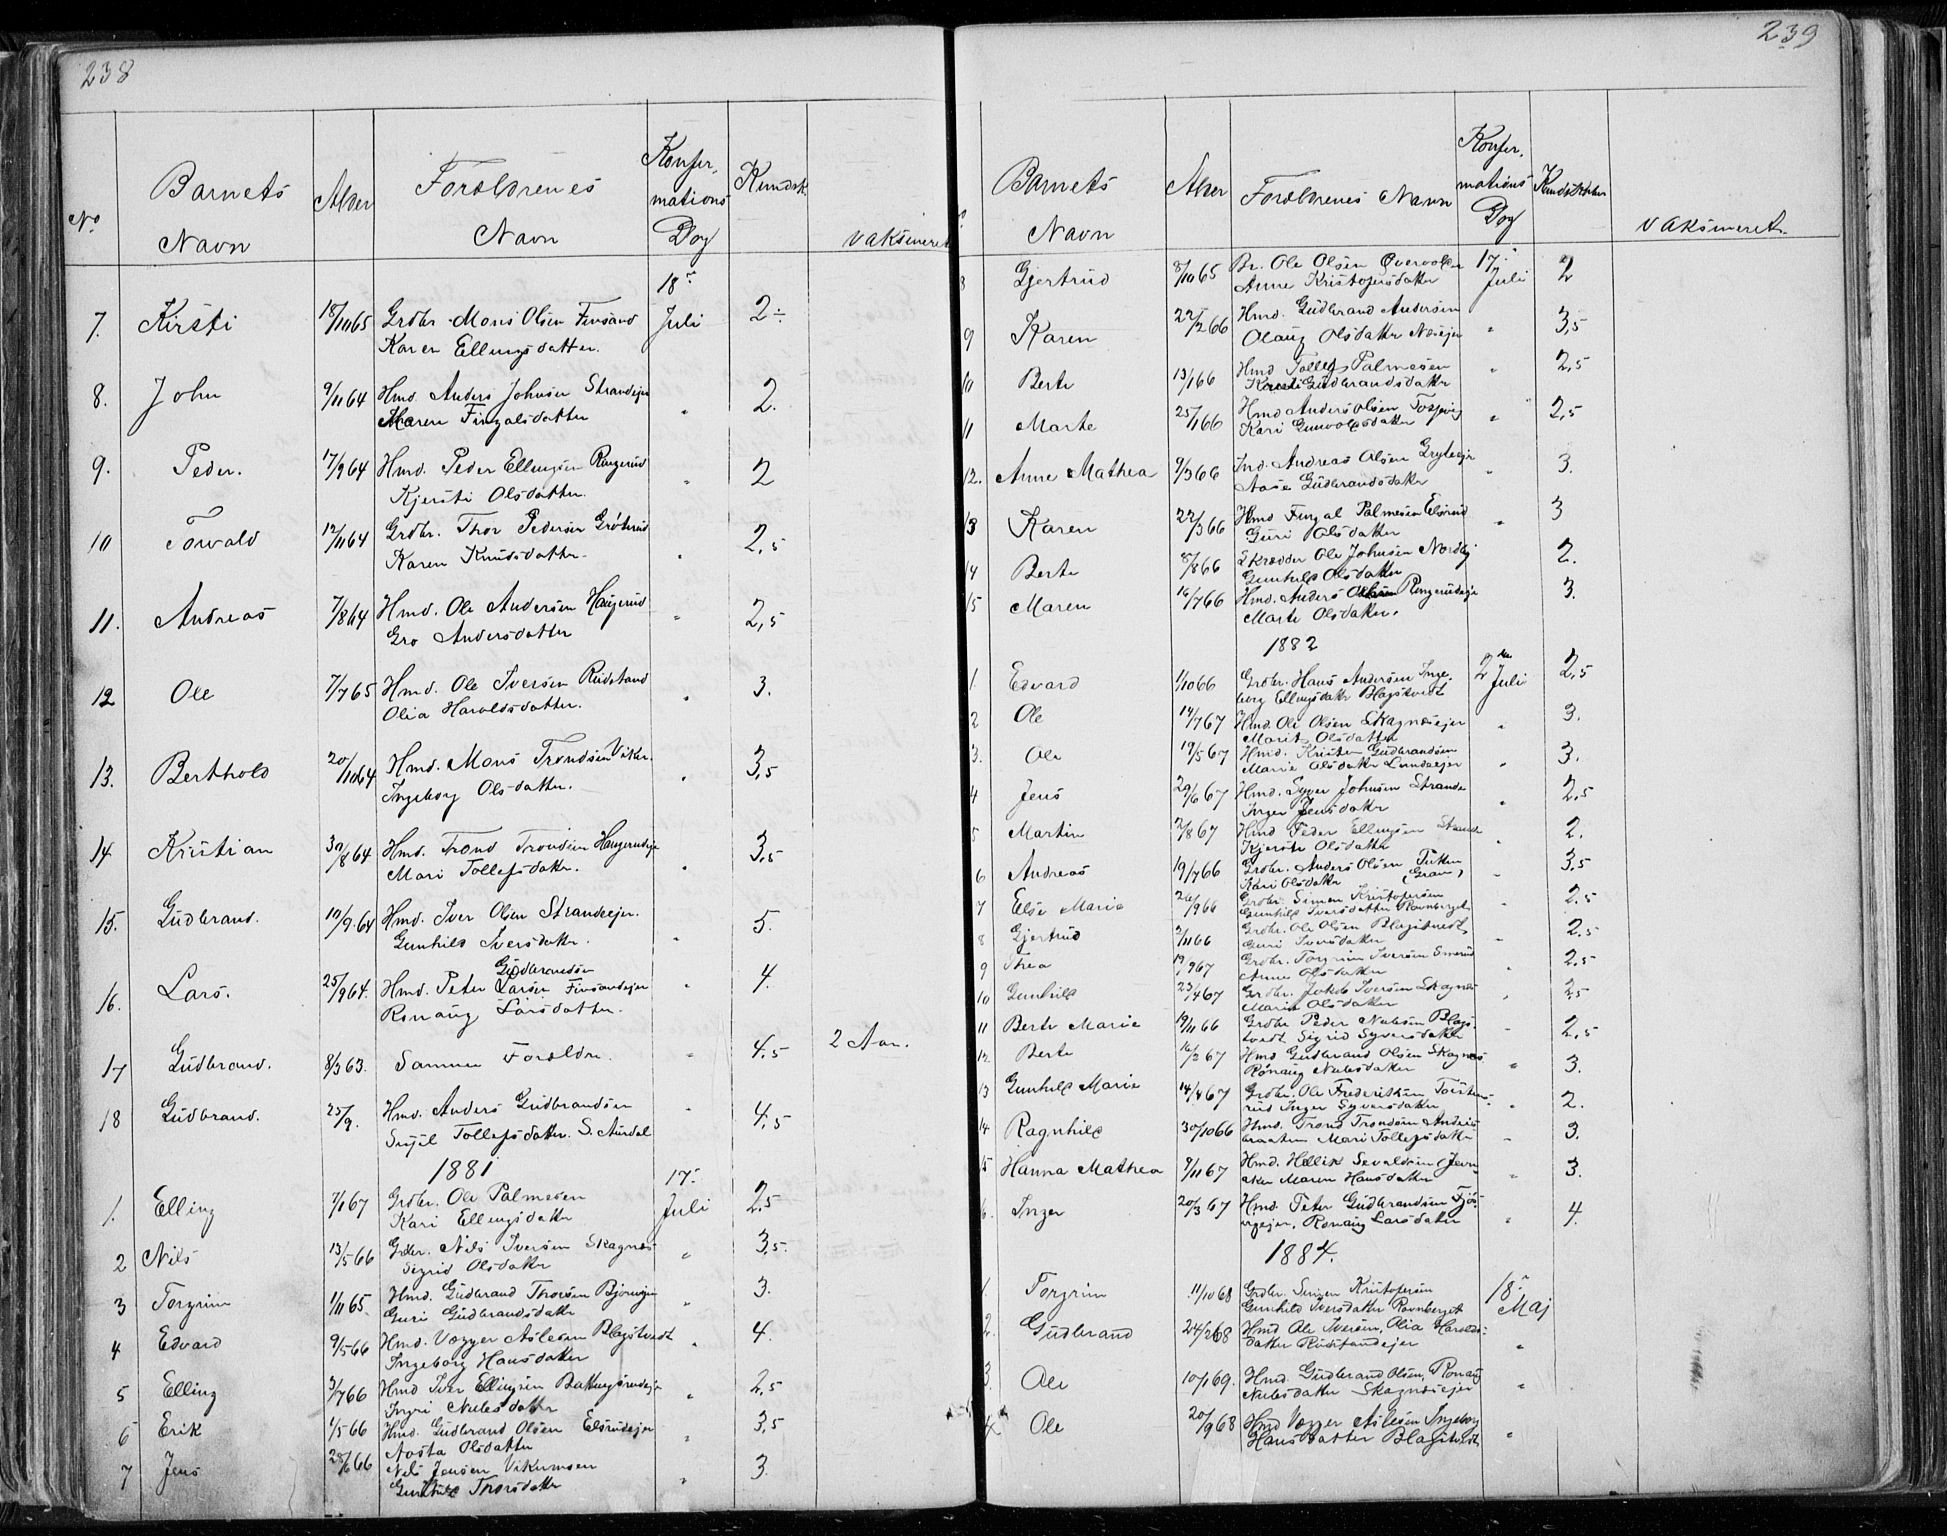 238
No.
Barnets
Navn
Alder
Forældrenes
Navn
Konfir-
mations
Dag
Kundsk.
Vaksineret
18de
7. Kirsti 18/11 65 Grdbr. Mons Olsen Finsand Juli 2÷
Karen Ellingsdatter.
8. John 9/11 64 Hmd. Anders Johnsen Strandejer " 2.
Maren Fingalsdatter
9. Peder. 17/9 64 Hmd. Peder Ellingsen Ringerud " 2
Kjersti Olsdatter.
10 Torvald 12/11 64 Grdbr. Thor Pedersen Grøterud " 2,5
Karen Knudsdatter.
11. Andreas 7/8 64 Hmd. Ole Andersen Haugerud " 2,5
Gro Andersdatter
12 Ole 7/7 65 Hmd. Ole Iversen Rudstand " 3.
Olia Haroldsdatter.
13. Berthold 20/10 64 Hmd. Mons Trondsen Viker. " 3,5
Ingeborg Olsdatter.
14 Kristian 30/8 64 Hmd. Trond Trondsen Haugerudeje " 3,5
Mari Tollefsdatter.
15. Gudbrand. 10/9 64 Hmd. Iver Olsen Strandeejer. " 5.
Gunhild Iversdatter.
Gudbrandsen
16. Lars. 25/9 64. Hmd. Peter Larsen Finsandejer " 4.
Rønaug Larsdatter.
17 Gudbrand. 8/3 63. Samme Forældre. " 4,5 2 Aar.
18 Gudbrand. 25/9. Hmd. Anders Gudbrandsen " 4,5
Sigil Tollefsdatter. S. Aurdal
1881 17de
1. Elling 7/1 67 Grdbr. Ole Palmesen Juli 2,5
Kari Ellingsdatter
2 Nils 13/5 66 Grdbr. Nils Iversen Skagnæs " 3,5.
Sigrid Olsdatter
3 Torgrim 1/11 65. Hmd. Gudbrand Thorsen Bjørnejer " 3.
Guri Gudbrandsdatter
4 Edvard 9/5 66 Hmd. Vegger Aslesen Blagstvedt " 4.
Ingeborg Hansdatter
5 Elling 3/7 66 Hmd Iver Ellingsen " 2,5
Ingri Nubsdatter
6 Erik 1/5 66 Hmd. Gudbrand Olsen Elsrudejer " 3,5
Aasta Olsdatter
7 Jens 28/6 66 Nils Jensen Vikumoen " 3.
Gunhild Thorsdatter
239
Barnets
Navn
Alder
Forældrenes Navn
Konfir-
mations
Dag
Kundskaber
Vaksineret.
8 Gjertrud 8/10 65 Br. Ole Olsen 17de 2
Anne Kristofersdatter Juli
9 Karen 22/2 66 Hmd. Gudbrand Andersen " 3,5
Olaug Olsdatter Næsejer
10 Berte 13/1 66 Hmd Tollef Palmesen " 2,5
Kirsti Gudbrandsdatter
11 Marte 25/1 66 Hmd Anders Olsen " 2,5
Kari Gunvolfsdatter
12. Anne Mathea 9/3 66 Ind. Andreas Olsen Gryteejer " 3.
Aase Gudbrandsdatter
13 Karen 22/3 66 Hmd Fingal Palmesen Elsrud " 3
Guri Olsdatter
14 Berte 8/8 66 Skrædder Ole Johnsen Nordby 2.
Gunhild Olsdatter
15 Maren 16/7 66 Hmd. Anders Olsen Ringerudeje 3.
Marte Olsdatter.
1882
1. Edvard 1/10 66 Grdbr. Hans Andersen Inge- 2den Juli 2,5
borg Ellingsdatter Blagstvedt
2 Ole 14/7 67 Hmd. Ole Olsen Skagnæsejer " 3.
Marit Olsdatter
3. Ole 19/5 67 Hmd. Kristen Gudbrandsen " 3.
Marie Olsdatter Lundeejer
4 Jens 29/6 67 Hmd. Syver Johnsen Strande " 2,5
Inger Jensdatter
5 Martin 2/8 67 Hmd Peder Ellingsen Strand " 2.
Kjersti Olsdatter
6 Andreas 19/7 66 Grdbr. Anders Olsen Putten " 3,5
Kari Olsdatter (Gran)
7 Else Marie 26/9 66 Grdbr. Simen Kristofersen " 2,5
Gunhild Iversdatter Ravnberget
8 Gjertrud 2/11 66 Grdbr. Ole Olsen Blagstvedt, " 2,5
Guri Iversdatter
9 Thea 19/9 67 Grdbr. Torgrim Iversen Smerud " 2,5
Anne Olsdatter
10 Gunhild 23/4 67 Grdbr. Jakob Iversen Skagnæs " 2,5
Marie Olsdatter
11 Berte Marie 19/11 66 Grdbr Peder Nubsen Blags- " 2,5
tvedt Sigrid Syversdatter
12. Berte 16/2 67 Hmd Gudbrand Olsen Skagnæs " 3.
Rønaug Nubsdatter
13 Gunhild Marie 14/4 67 Grdbr. Ole Frederiksen Torsten- " 2.
rud Inger Syversdatter
14 Ragnhild 30/10 66 Hmd. Trond Trondsen Andris- " 3.
braaten Mari Tollefsdatter
15 Hanna Mathea 9/11 67 Hmd. Hellik Sevaldsen Jevn- " 3.
aker Maren Hansdatter
6. Inger 20/3 67 Hmd. Peter Gudbrandsen Fjøs- " 4.
ergejer, Rønaug Larsdatter
1884.
1. Torgrim 11/10 68 Grdbr. Simen Kristofersen 18de
Gunhild Iversdatter Ravnberget Maj
2. Gudbrand 24/2 68 Hmd Ole Iversen, Olia Harolds-
datter Rudstandejer "
3. Ole 10/1 69. Hmd. Gudbrand Olsen, Rønaug
Nubsdatter Skagnæsejer "
4 Ole 20/9 68 Hmd Vegger Aslesen Ingeborg
Hansdatter Blagstvedt "